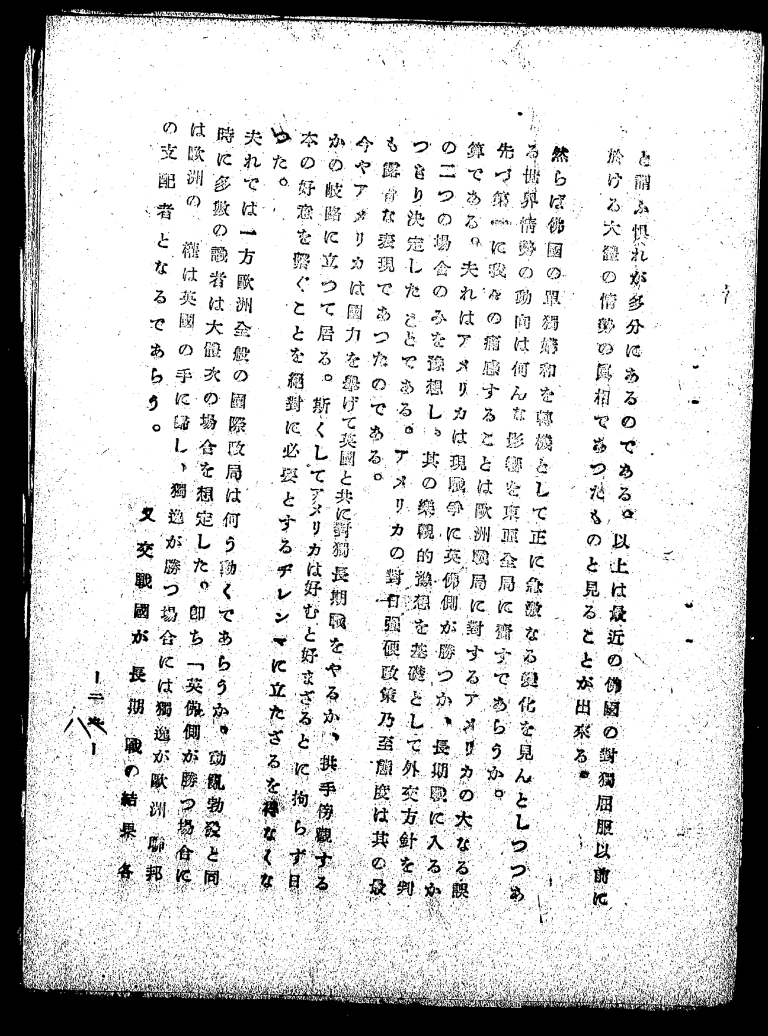 と謂ふ惧れが多分にあるのである。以上は最近の佛國の對獨屈服以前に
於ける大體の情勢の眞相であつたものと見ることが出來る。
然らば佛國の單獨媾和を轉機として正に急激なる變化を見んとしつつあ
る世界情勢の動向は何んな影響を東亞全局に齎すであらうか。
先づ第一に我々の痛感することは歐洲戰局に對するアメリカの大なる誤
算である。夫れはアメリカは現戰爭に英佛側が勝つか、長期戰に入るか
の二つの場合のみを豫想し、其の樂觀的豫想を基礎として外交方針を判
つきり決定したことである。アメリカの對日強硬政策乃至態度は其の最
も露骨な表現であつたのである。
今やアメリカは國力を擧げて英國と共に對獨長期戰をやるか、拱手傍觀する
かの岐路に立つて居る。斯くしてアメリカは好むと好まざるとに拘らず日
本の好意を繋ぐことを絕對に必要とするヂレンマに立たざるを得なくな
つた。
夫れでは一方歐洲全般の國際政局は何う動くであらうか。動亂勃發と同
時に多數の識者は大體次の場合を想定した。卽ち「英佛側が勝つ場合に
は歐洲の 權は英國の手に歸し、獨逸が勝つ場合には獨逸が歐洲聯邦
の支配者となるであらう。又交戰國が長期戰の結果各